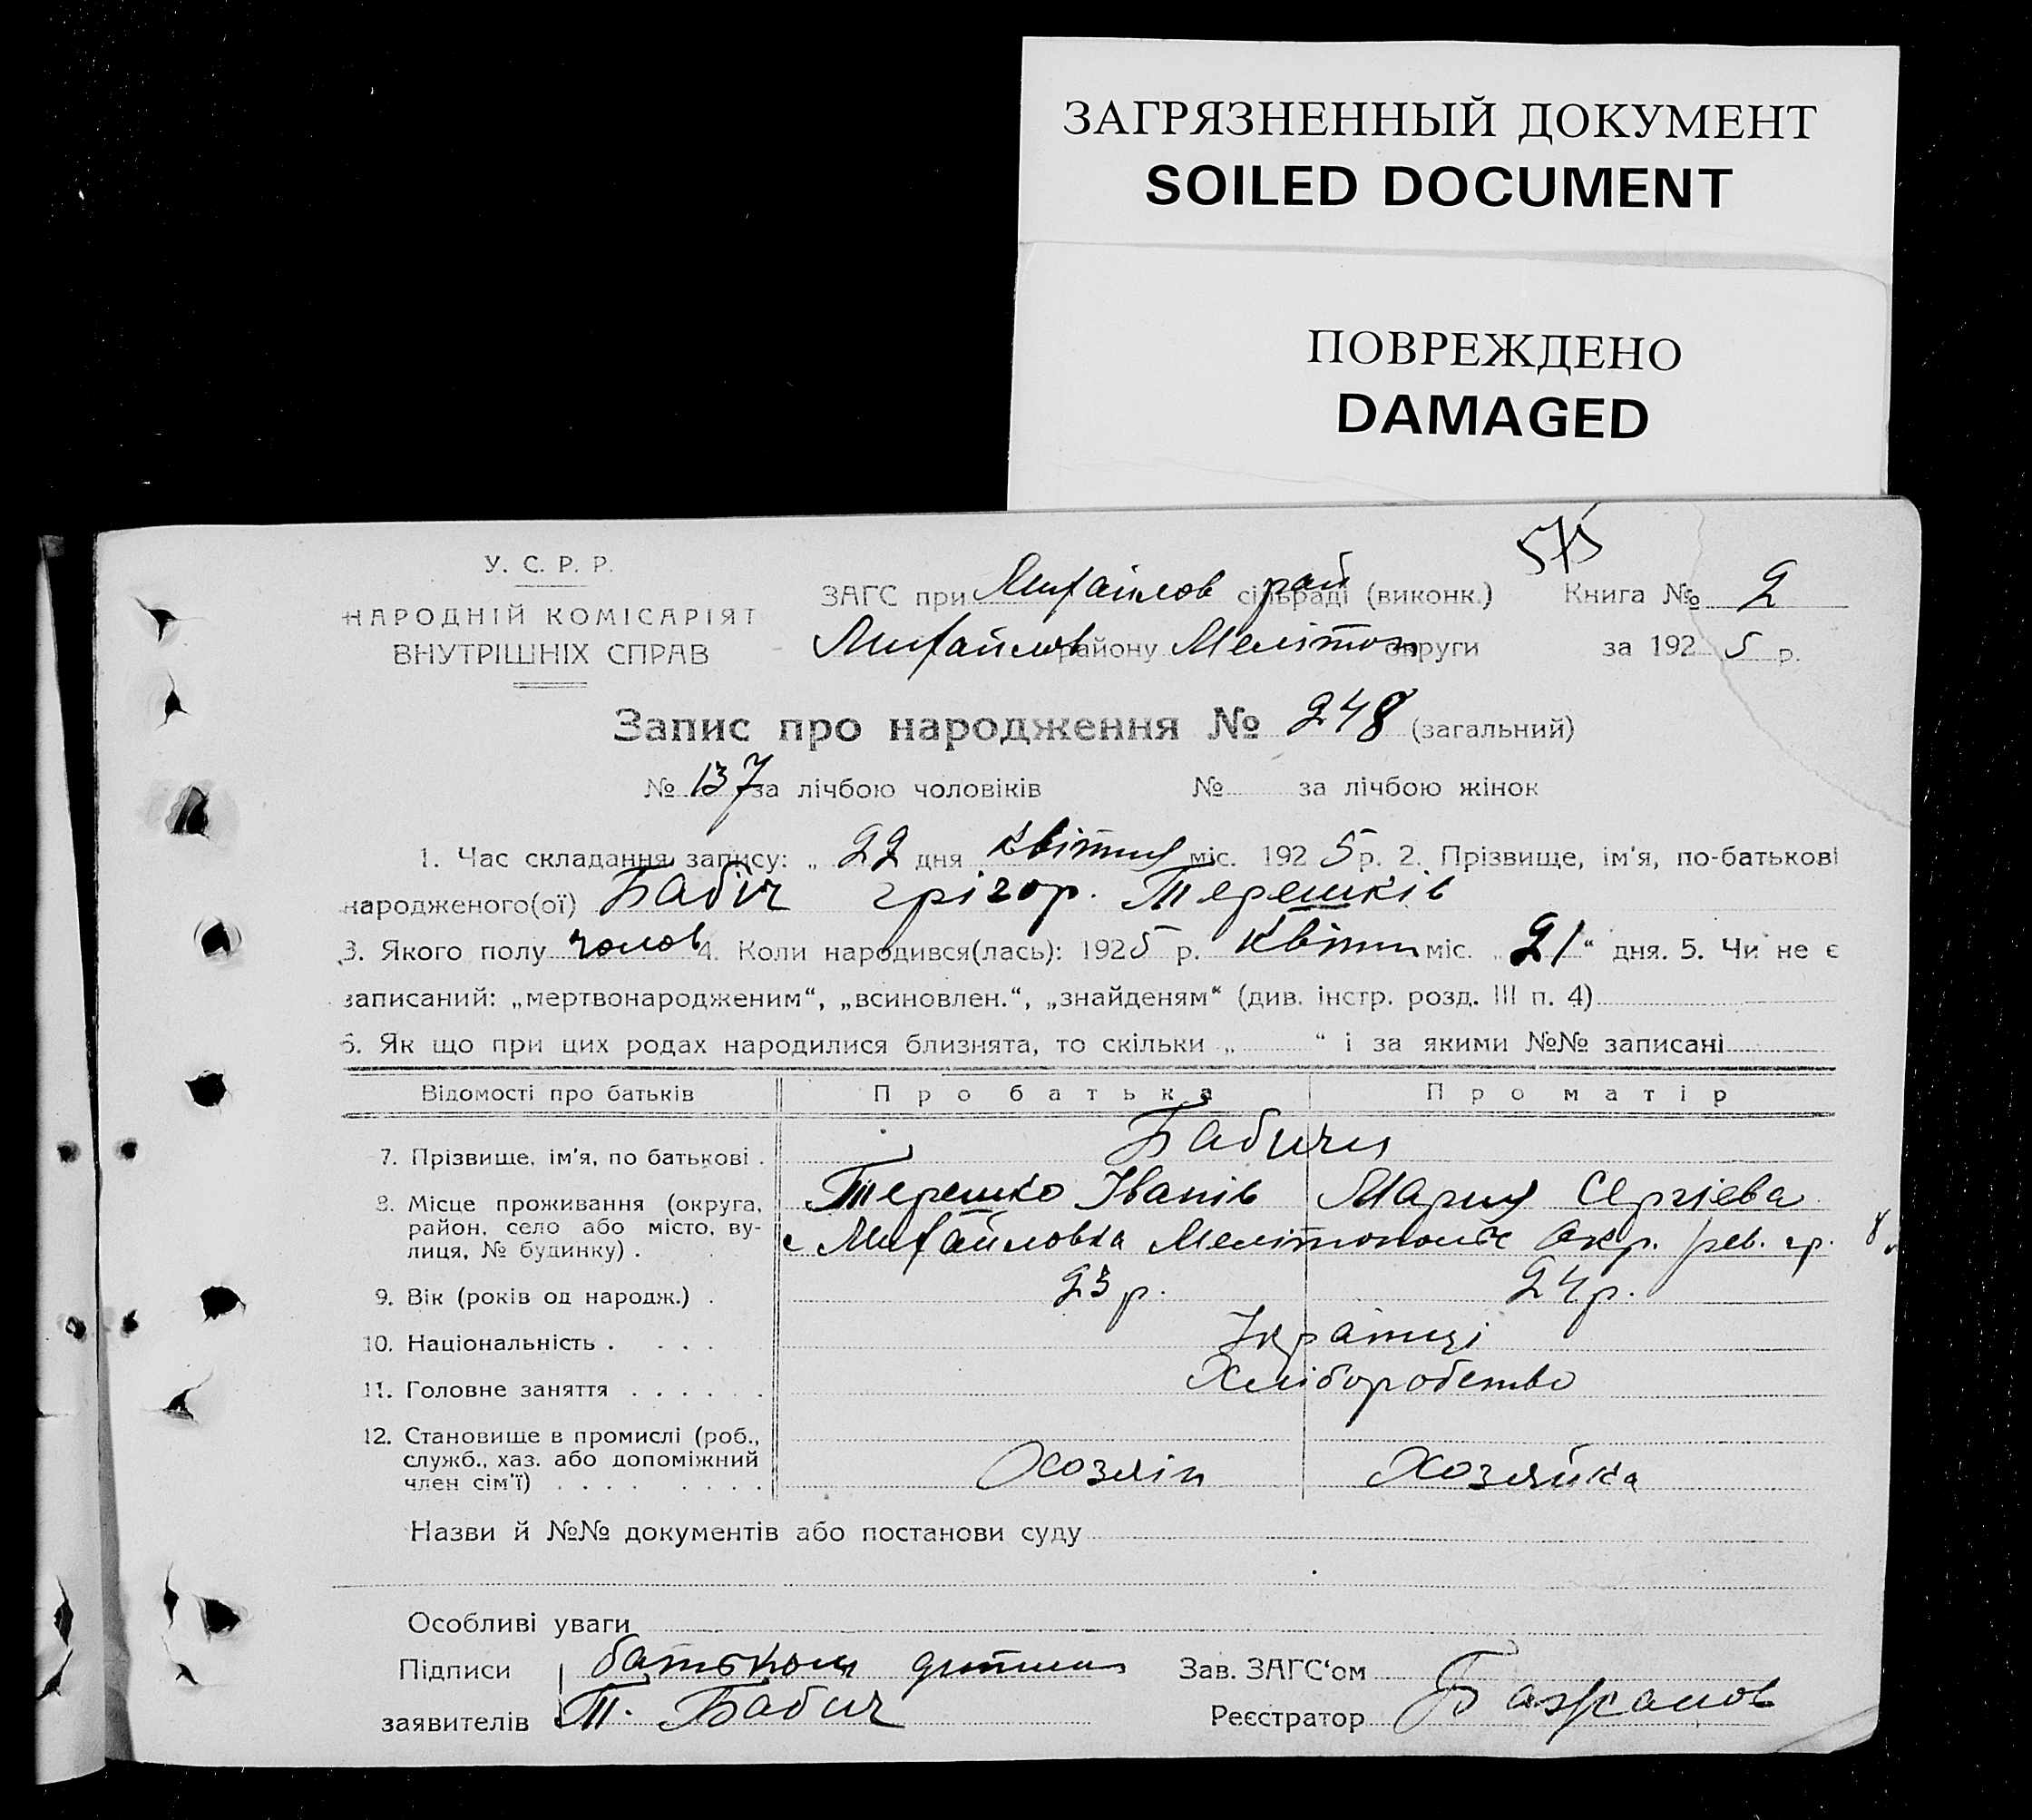 ЗАГРЯЗНЕННЫЙ ДОКУМЕНТ
SOILED DOCUMENT
ПОВРЕЖДЕНО
DAMAGED
575
У. С. Р. Р.
НАРОДНІЙ КОМІСАРІЯТ
ВНУТРІШНІХ СПРАВ
ЗАГС при Михайлов рай сільраді (виконк.) Книга № 2
Михайлов району Меліток округи за 1925 р.
Запис про народження № 248 (загальний)
№ 137 за лічбою чоловіків № за лічбою жінок
1. Час складання запису: „ 22 дня Квітня міс. 1925 р. 2. Прізвище, ім'я, по-батькові
народженого(ої) Бабіч Грігор. Терешків
3. Якого полу чолов 4. Коли народився(лась): 1925 р. Квітн міс. „21“ дня. 5. Чи не є
записаний: „мертвонародженим“, „всиновлен.“, „знайденям“ (див. інстр. розд. III п. 4)
6. Як що при цих родах народилися близнята, то скільки „ “ і за якими №№ записані
Відомості про батьків Про батька Про матір
7. Прізвище, ім'я, по батькові . Бабичи
Терешко Іванів Мария Сергієва
8. Місце проживання (округа, район, село або місто, вулиця, № будинку) . с Михайловка Мелітопольс окр. рев. гр. 8
9. Вік (років од народж.) . 23 р. 24 р.
10. Національність . . . . Українці
11. Головне заняття . . . . . . Хліборобство
12. Становище в промислі (роб.,
служб., хаз. або допоміжний
член сім'ї) . . . . . . . . Хозяін Хозяйка
Назви й №№ документів або постанови суду
Особливі уваги
Підписи батьком дитини Зав. ЗАГС'ом
заявителів Т. Бабич Реєстратор Бажанов